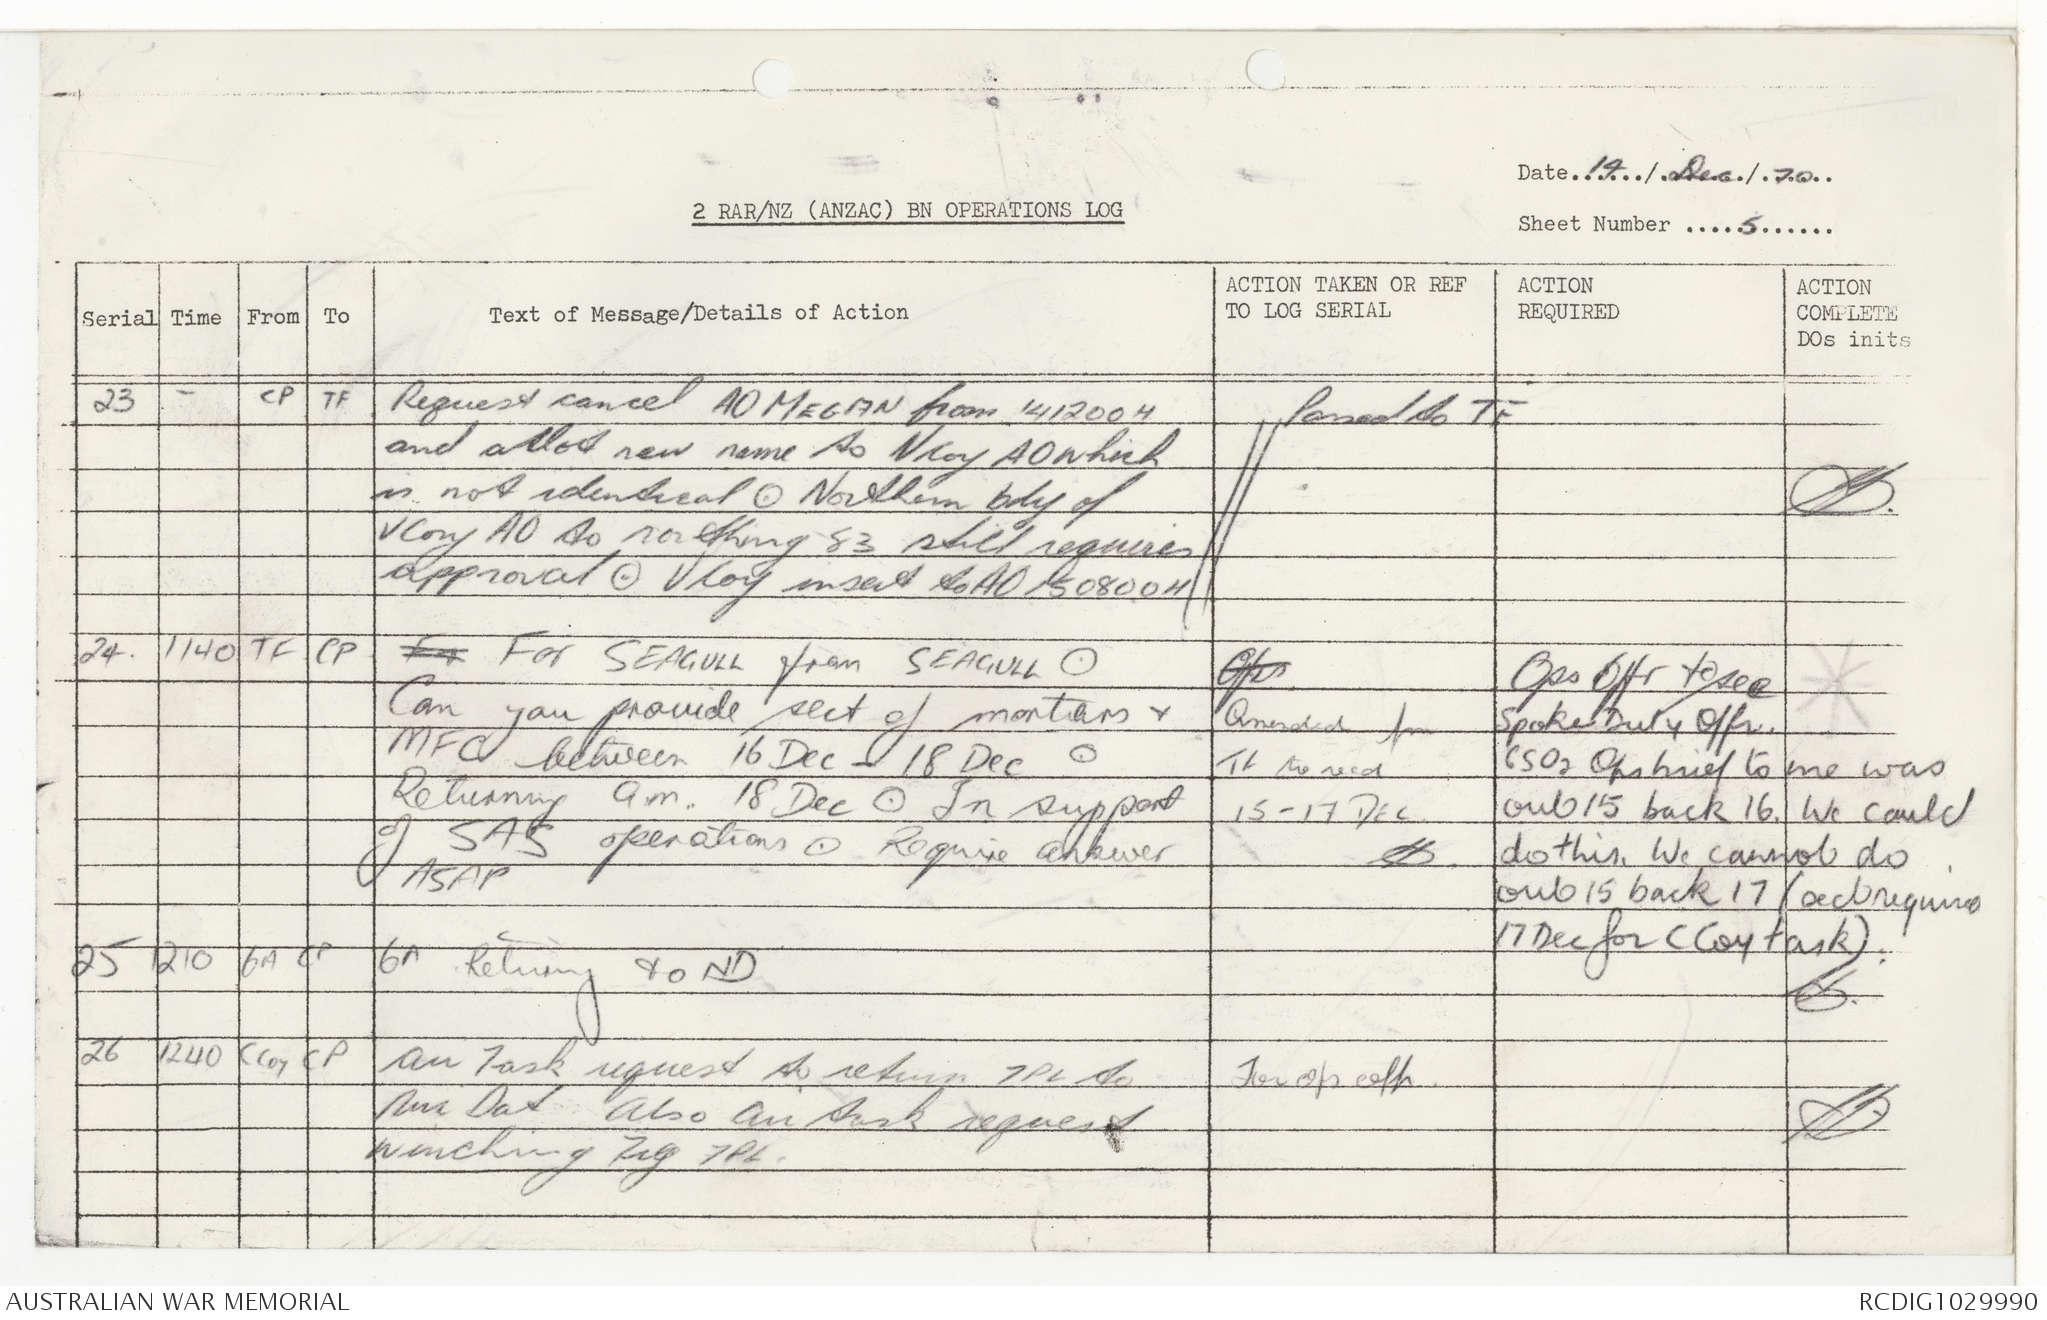 Date 14 / Dec / 70
2 RAR/NZ (ANZAC) BN OPERATIONS LOG
Sheet Number 5
Serial Time From To Text of Message/Details of Action ACTION TAKEN OR REF TO LOG SERIAL ACTION REQUIRED ACTION COMPLETE DOs inits
23 - CP TF Request cancel AO MEGAN from 141200H Passed to TF
and allot new name to V Coy AO which
is not identical ⊙ Northern bdy of
V Coy AO to northing 83 still requires
approval ⊙ V Coy insert to AO 150800H
24. 1140 TF CP For SEAGULL from SEAGULL ⊙ Ops Offr to see
Can you provide sect of mortars + Amended fm Spoke Duty Offr.
MFC between 16 Dec - 18 Dec ⊙ TF to read GSO2 Ops brief to me was
Returning a.m. 18 Dec ⊙ In support 15-17 DEC out 15 back 16. We could
of SAS operations ⊙ Require answer do this. We cannot do
ASAP out 15 back 17 (sect required
17 Dec for C Coy task).
25 1210 6A CP 6A Returning to ND
26 1240 C Coy CP Air Task request to return 7PL to For op offr.
Nui Dat. Also air task request
winching Trg 7PL.
AUSTRALIAN WAR MEMORIAL RCDIG1029990